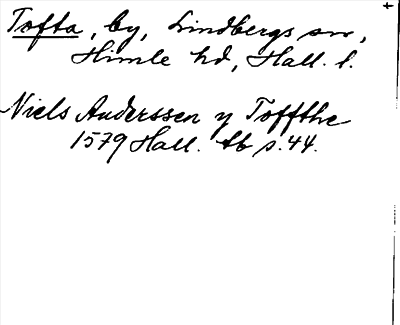 Tofta, by, Lindbergs sn,
Himle hd, Hall. l.
Niels Anderssen y Toffthe
1579 Hall. tb s. 44.